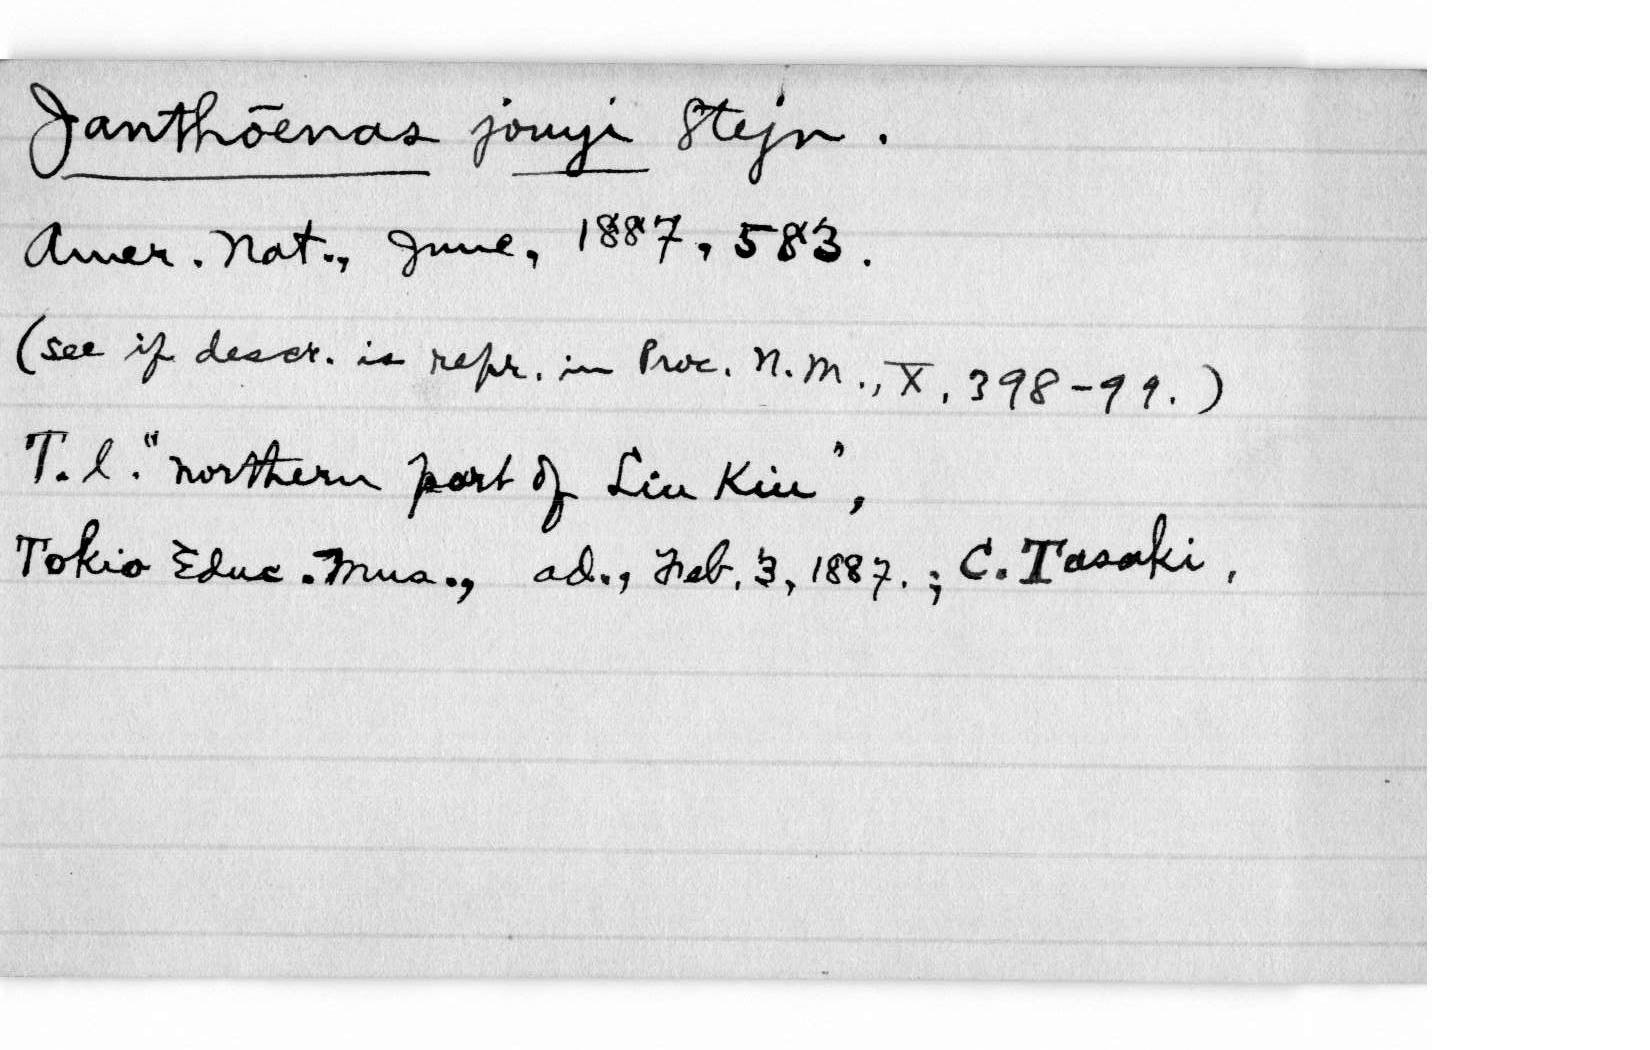 Janthōenas jouyi Stejn.
Amer. Nat., June, 1887, 583.
(see if descr. is repr. in Proc. N. M., X, 398-99.)
T. l. "northern part of Liu Kiu",
Tokio Educ. Mus., ad., Feb. 3, 1887.; C. Tasaki,